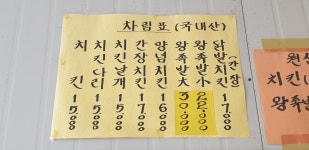 차림표 (국내산)
치킨 15000
치킨다리 15000
치킨날개 15000
간장치킨 17000
양념치킨 16000
왕족발大 30000
왕족발小 22000
닭발(간장) 17000
치킨
왕족발